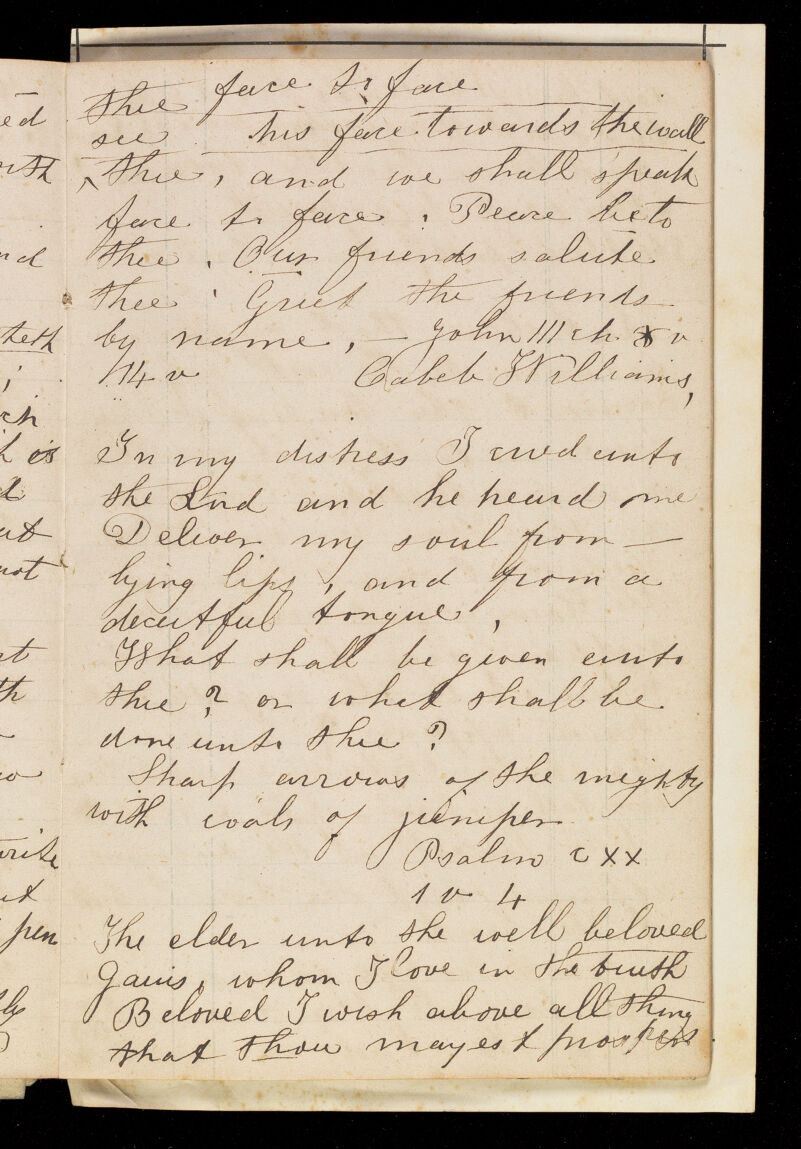 thee face to face
see his face towards the wall
thee, and we shall speak
face to face. Peace be to
thee. Our friends salute
thee. Greet the friends
by name, — John III ch v
14 v Cabeb Williams,
In my distress I cried unto
the Lord and he heard me
Deliver my soul from —
lying lips, and from a
deceitful tongue,
What shall be given unto
thee? or what shall be
done unto thee?
Sharp arrows of the mighty
with coals of juniper
Psalm cxx
1 v 4
The elder unto the well beloved
Gaius, whom I love in the truth
Beloved I wish above all thing
that thou mayest prosper